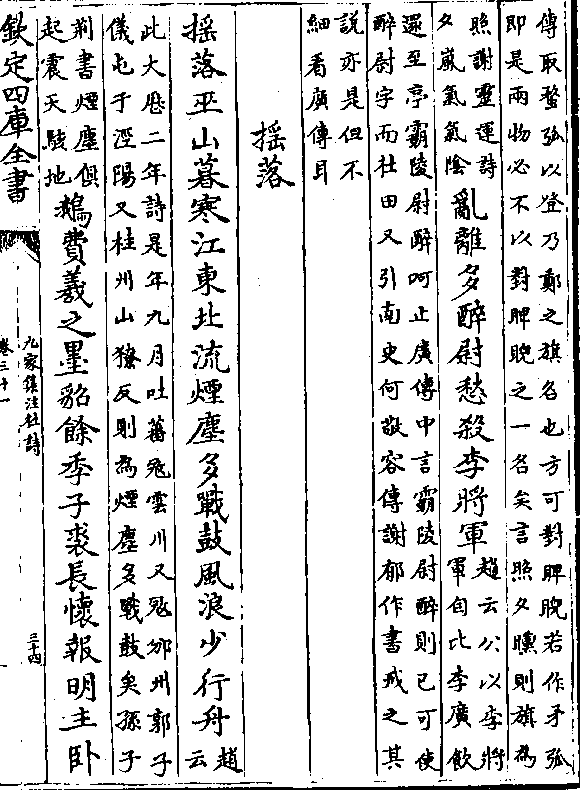 傳取蝥弧以登乃鄭之旗名也方可對睥睨若作矛弧
即是兩物必不以對睥睨之一名矣言照夕曛則旗為
照謝靈運詩
夕嵐氣氣陰
亂離多醉尉愁殺李將軍
趙云公以李將
軍自比李廣飲
還至亭霸陵尉醉呵止廣傳中言霸陵尉醉則已可使
醉尉字而杜田又引南史何敬容傳謝郁作書戒之其
說亦是但不
細看廣傳耳
搖落
搖落巫山暮寒江東北流煙塵多戰鼓風浪少行舟
趙
云
此大厯二年詩是年九月吐蕃宼雲川又宼邠州郭子
儀屯于涇陽又桂州山獠反則為煙塵多戰鼓矣孫子
荆書煙塵俱
起震天駭地
鵝費羲之墨貂餘季子裘長懷報明主卧
欽定四庫全書
九家集注杜詩
卷三十一
三十四